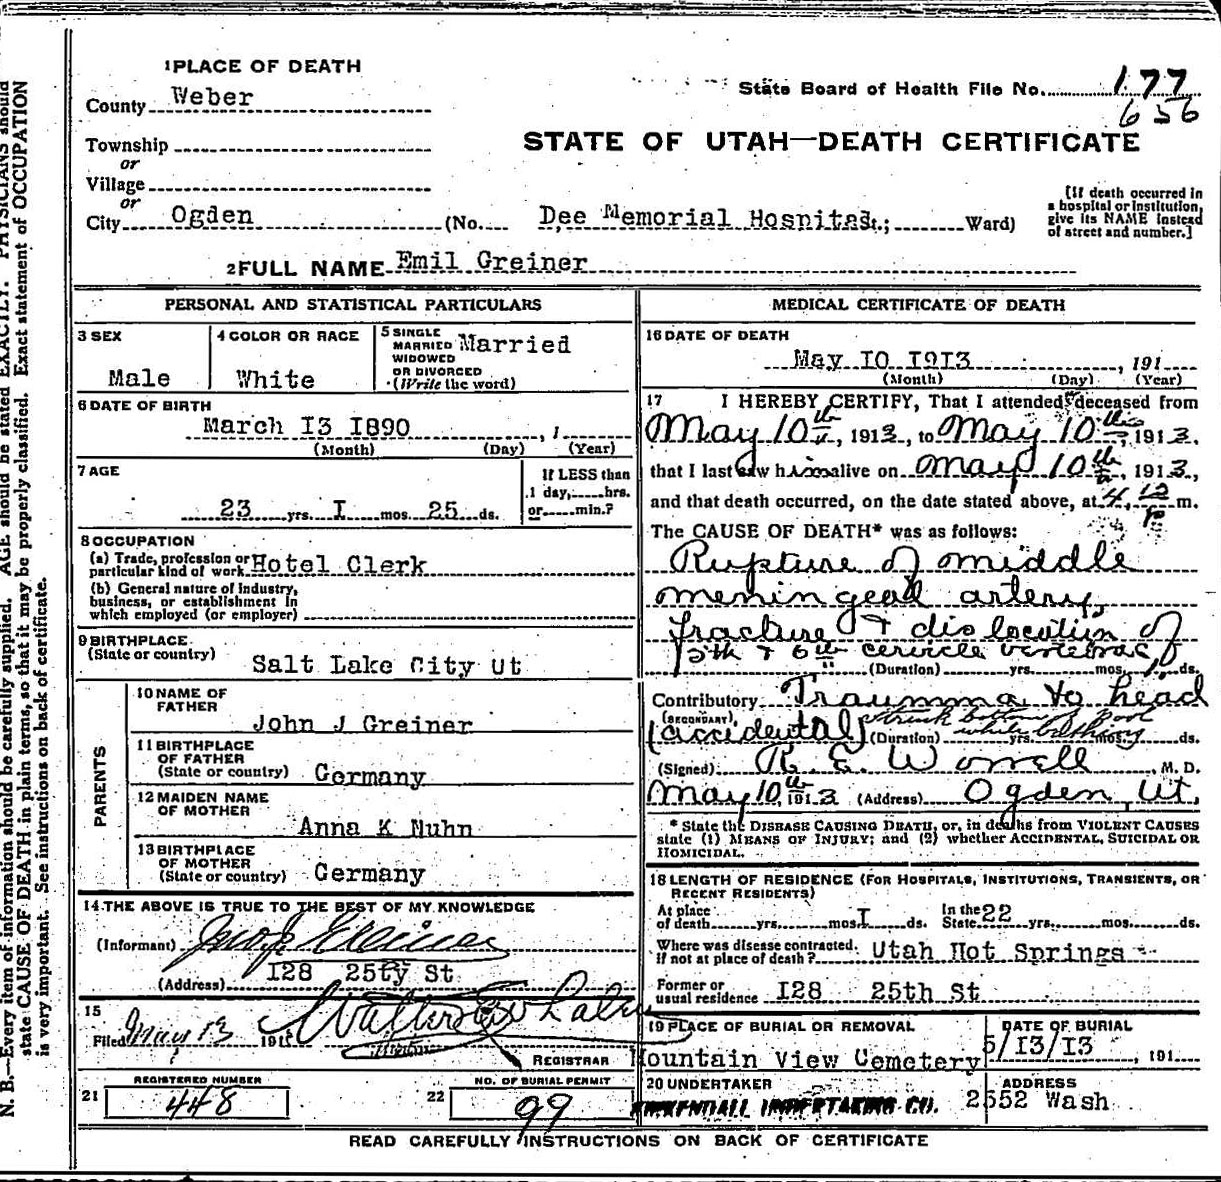 N. B.—Every item of information should be carefully supplied. AGE should be stated EXACTLY. PHYSICIANS should
state CAUSE OF DEATH in plain terms, so that it may be properly classified. Exact statement of OCCUPATION
is very important. See instructions on back of certificate.
1 PLACE OF DEATH
County Weber
Township
or
Village
or
City Ogden (No. Dee Memorial Hospital St.; Ward)
State Board of Health File No. 177
656
STATE OF UTAH—DEATH CERTIFICATE
[If death occurred in
a hospital or institution,
give its NAME instead
of street and number.]
2 FULL NAME Emil Greiner
PERSONAL AND STATISTICAL PARTICULARS
3 SEX
Male
4 COLOR OR RACE
White
5 SINGLE
MARRIED
WIDOWED
OR DIVORCED
(Write the word)
Married
6 DATE OF BIRTH
March I3 I890 , 1
(Month) (Day) (Year)
7 AGE
23 yrs. I mos. 25 ds.
If LESS than
1 day, hrs.
or min.?
8 OCCUPATION
(a) Trade, profession or
particular kind of work Hotel Clerk
(b) General nature of industry,
business, or establishment in
which employed (or employer)
9 BIRTHPLACE
(State or country) Salt Lake City Ut
PARENTS
10 NAME OF
FATHER
John J Greiner
11 BIRTHPLACE
OF FATHER
(State or country) Germany
12 MAIDEN NAME
OF MOTHER
Anna K Nuhn
13 BIRTHPLACE
OF MOTHER
(State or country) Germany
14 THE ABOVE IS TRUE TO THE BEST OF MY KNOWLEDGE
(Informant) Jno J Greiner
(Address) I28 25ty St
15
Filed May 13 191
REGISTRAR
21 REGISTERED NUMBER
448
22 NO. OF BURIAL PERMIT
99
MEDICAL CERTIFICATE OF DEATH
16 DATE OF DEATH
May IO I9I3 , 191
(Month) (Day) (Year)
17 I HEREBY CERTIFY, That I attended deceased from
May 10th, 1913, to May 10th, 1913.
that I last saw him alive on May 10th, 1913,
and that death occurred, on the date stated above, at 4 12 P m.
The CAUSE OF DEATH* was as follows:
Rupture of middle
meningeal artery,
fracture & dislocation of
5th & 6th cervicle vertebrae
(Duration) yrs. mos. ds.
Contributory Traumma to head
(SECONDARY)
(accidental) struck bottom of Pool
while bathing
(Duration) yrs. mos. ds.
(Signed) R. E. Worrell M. D.
May 10th, 1913 (Address) Ogden, Ut.
* State the DISEASE CAUSING DEATH, or, in deaths from VIOLENT CAUSES
state (1) MEANS OF INJURY; and (2) whether ACCIDENTAL, SUICIDAL OR
HOMICIDAL.
18 LENGTH OF RESIDENCE (FOR HOSPITALS, INSTITUTIONS, TRANSIENTS, OR
RECENT RESIDENTS)
At place
of death yrs. mos. I ds. In the
State 22 yrs. mos. ds.
Where was disease contracted.
If not at place of death? Utah Hot Springs
Former or
usual residence I28 25th St
19 PLACE OF BURIAL OR REMOVAL
Mountain View Cemetery
DATE OF BURIAL
5/I3/I3 , 191
20 UNDERTAKER
KIRKENDALL UNDERTAKING CO.
ADDRESS
2552 Wash
READ CAREFULLY INSTRUCTIONS ON BACK OF CERTIFICATE